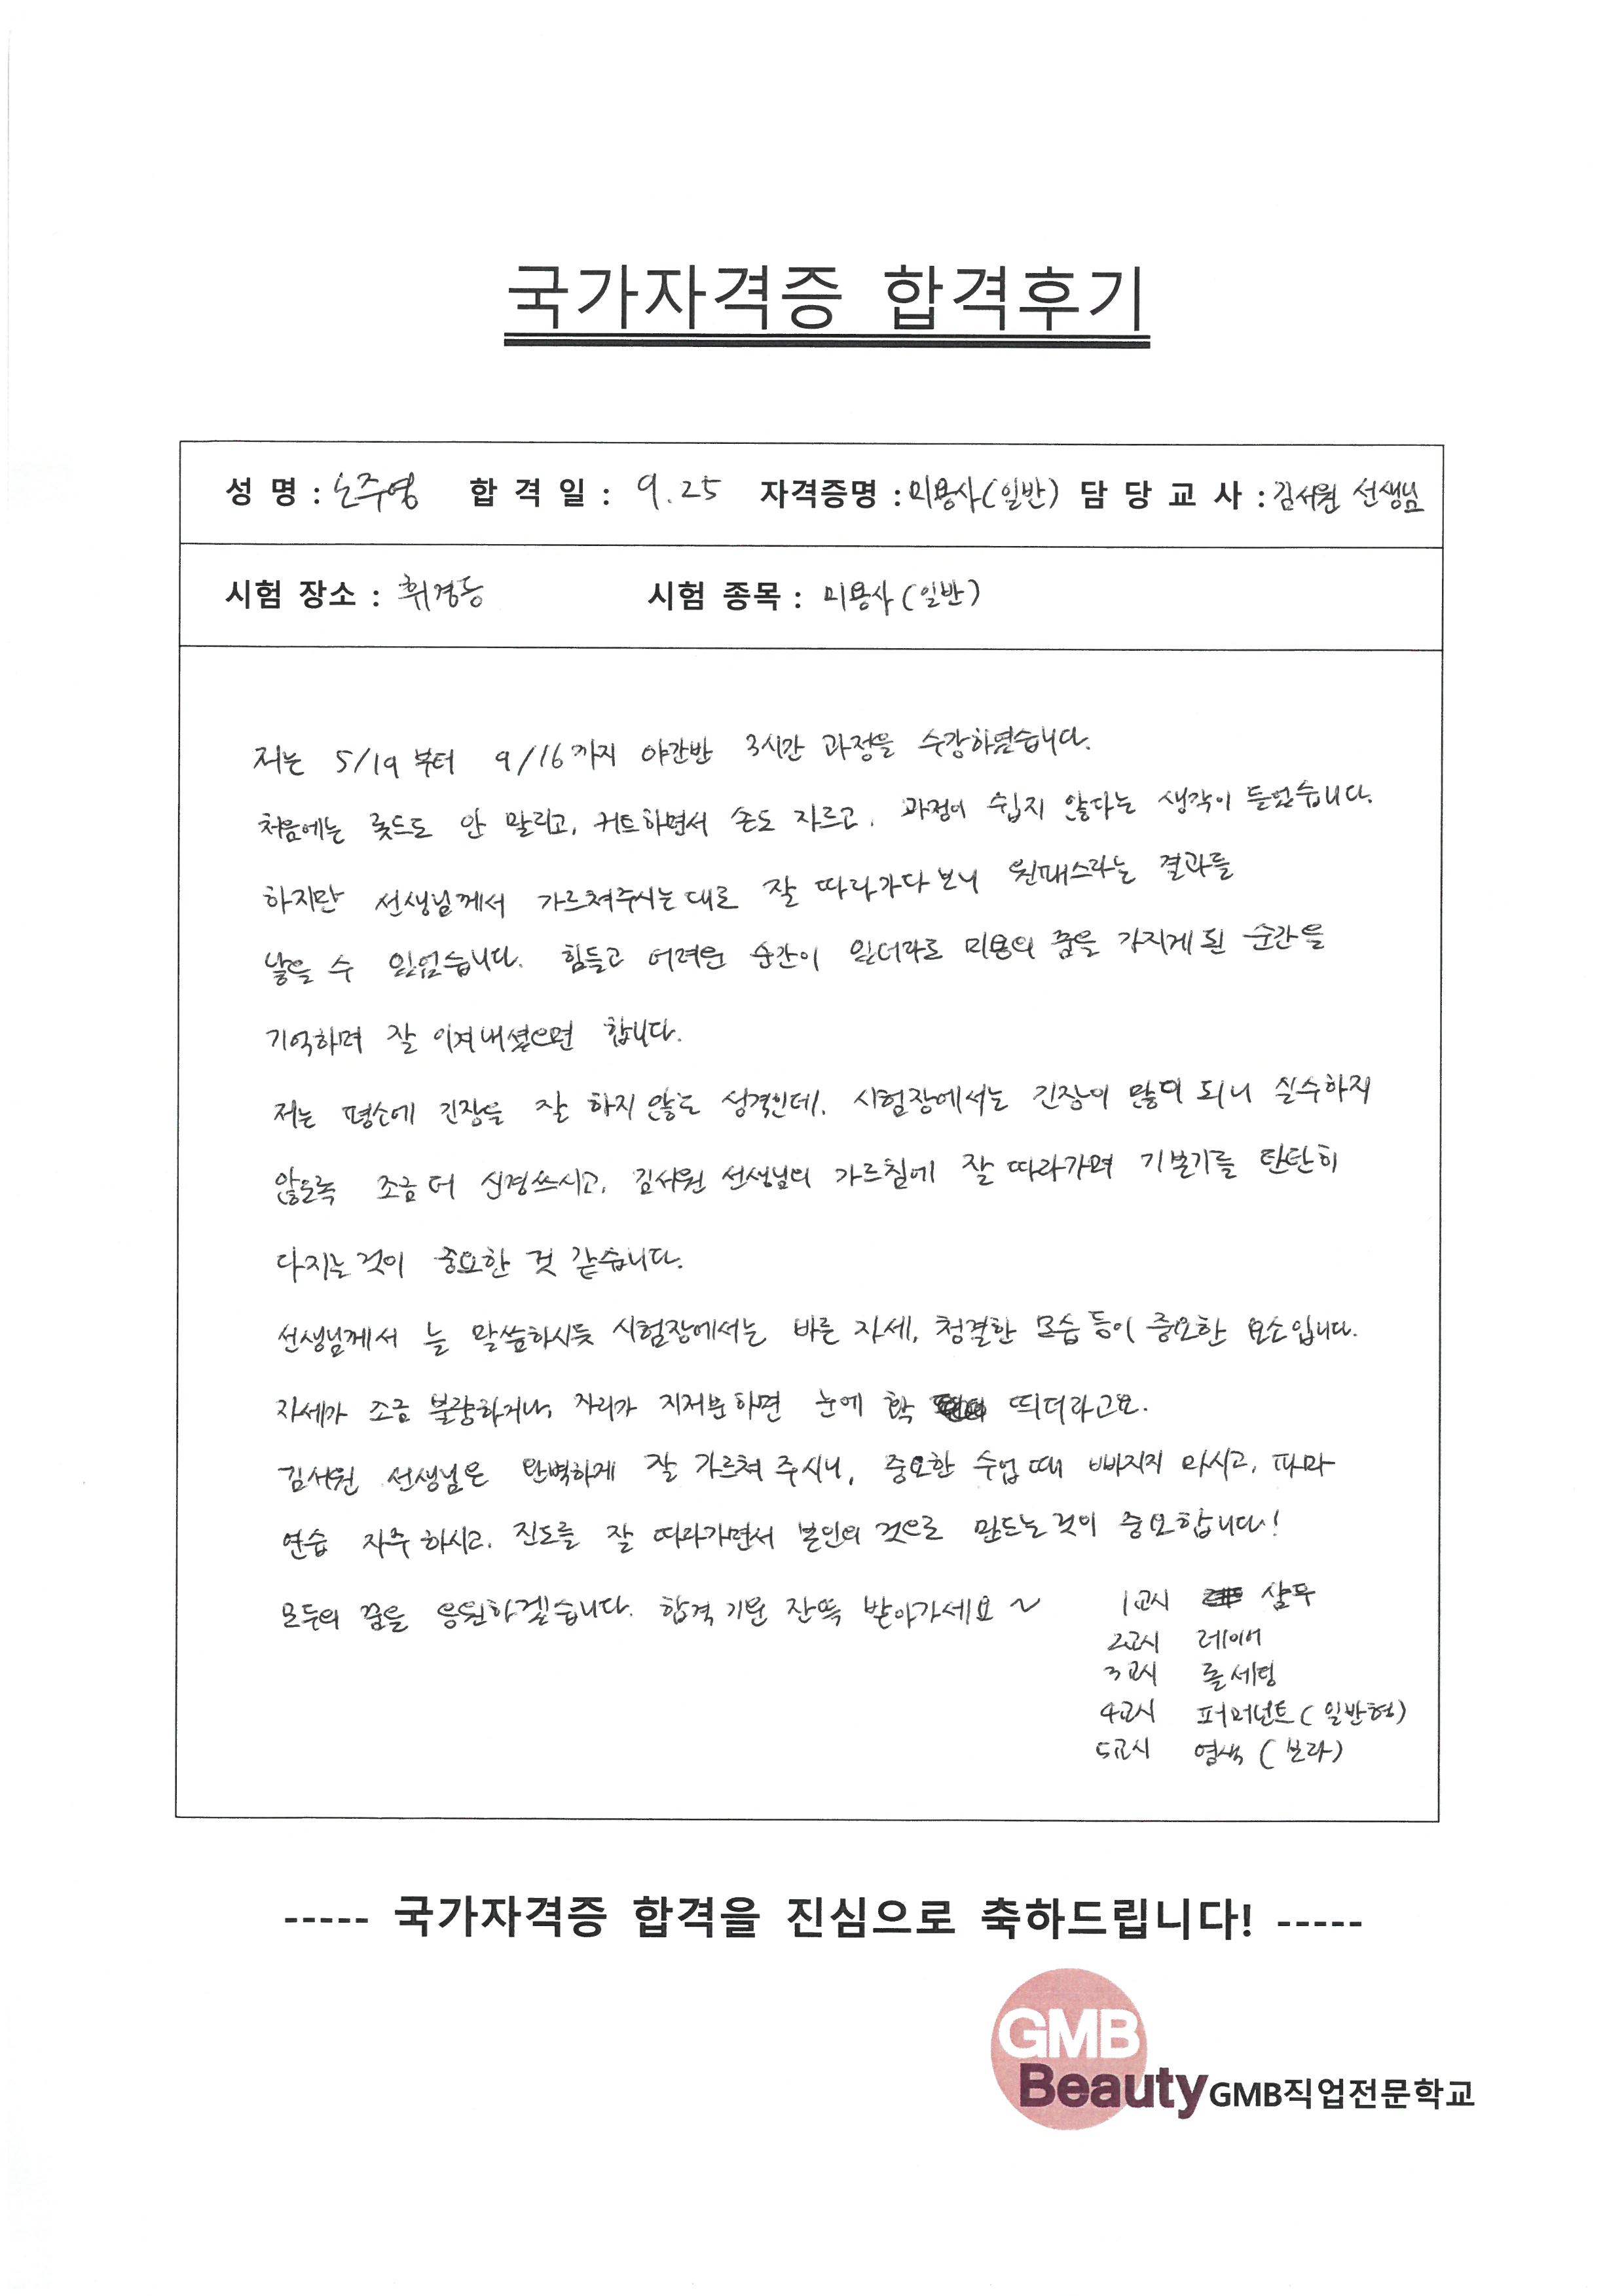 국가자격증 합격후기
성 명 : 노주영 합 격 일 : 9.25 자격증명 : 미용사(일반) 담 당 교 사 : 김서원 선생님
시험 장소 : 휘경동 시험 종목 : 미용사(일반)
저는 5/19부터 9/16까지 야간반 3시간 과정을 수강하였습니다.
처음에는 롯드도 안 말리고, 커트하면서 손도 자르고, 과정이 쉽지 않다는 생각이 들었습니다.
하지만 선생님께서 가르쳐주시는대로 잘 따라가다보니 원패스라는 결과를
낳을 수 있었습니다. 힘들고 어려운 순간이 있더라도 미용의 꿈을 가지게 된 순간을
기억하며 잘 이겨내셨으면 합니다.
저는 평소에 긴장을 잘 하지 않는 성격인데, 시험장에서는 긴장이 많이 되니 실수하지
않도록 조금 더 신경쓰시고, 김서원 선생님의 가르침에 잘 따라가며 기본기를 탄탄히
다지는 것이 중요한 것 같습니다.
선생님께서 늘 말씀하시듯 시험장에서는 바른 자세, 청결한 모습 등이 중요한 요소입니다.
자세가 조금 불량하거나, 자리가 지저분하면 눈에 확 띄더라고요.
김서원 선생님은 완벽하게 잘 가르쳐 주시니, 중요한 수업 때 빠지지 마시고, 파마
연습 자주 하시고, 진도를 잘 따라가면서 본인의 것으로 만드는 것이 중요합니다!
모두의 꿈을 응원하겠습니다. 합격 기운 잔뜩 받아가세요~
1교시 샴푸
2교시 레이어
3교시 롤세팅
4교시 퍼머넌트(일반형)
5교시 염색 (보라)
----- 국가자격증 합격을 진심으로 축하드립니다! -----
GMB
Beauty GMB직업전문학교